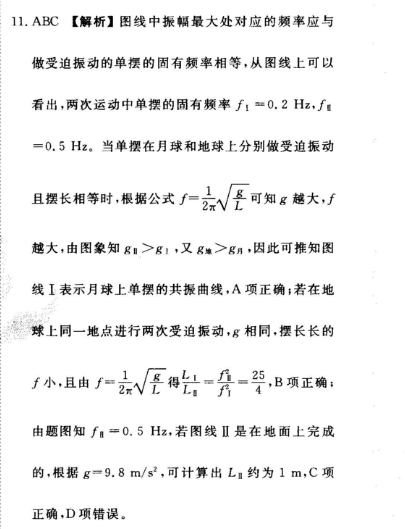 11. ABC 【解析】图线中振幅最大处对应的频率应与
做受迫振动的单摆的固有频率相等,从图线上可以
看出,两次运动中单摆的固有频率 fⅠ=0.2 Hz,fⅡ
=0.5 Hz。当单摆在月球和地球上分别做受迫振动
且摆长相等时,根据公式 f=1/2π√g/L 可知 g 越大,f
越大,由图象知 gⅡ>gⅠ,又 g地>g月,因此可推知图
线Ⅰ表示月球上单摆的共振曲线,A 项正确;若在地
球上同一地点进行两次受迫振动,g 相同,摆长长的
f 小,且由 f=1/2π√g/L 得 LⅠ/LⅡ=fⅡ²/fⅠ²=25/4,B 项正确;
由题图知 fⅡ=0.5 Hz,若图线Ⅱ是在地面上完成
的,根据 g=9.8 m/s²,可计算出 LⅡ约为 1 m,C 项
正确,D 项错误。